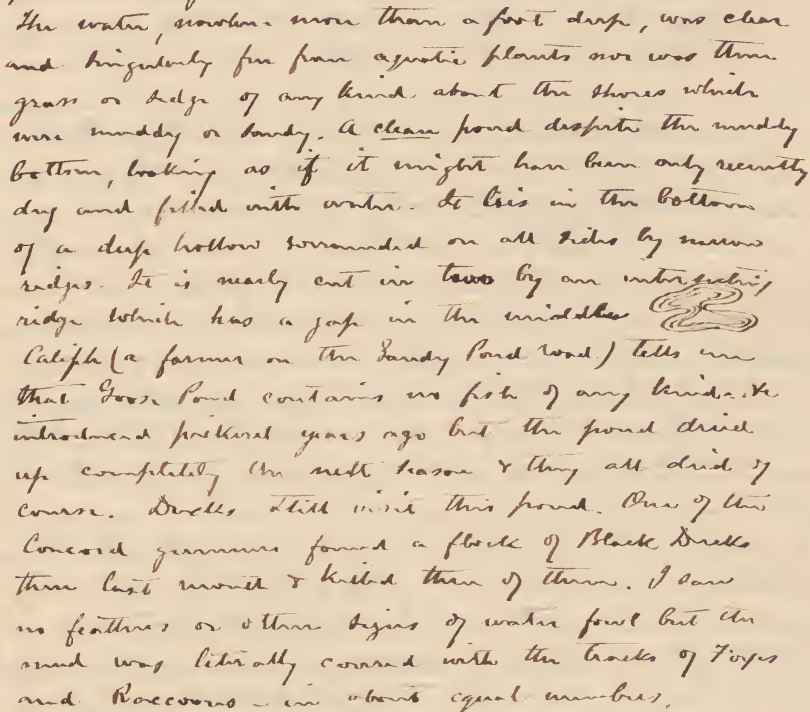 The water, nowhere more than a foot deep, was clear
and singularly free from aquatic plants nor was there
grass or sedge of any kind about the shores which
were muddy or sandy. A clean pond despite the muddy
bottom, looking as if it might have been only recently
dug and filled with water. It lies in the bottom
of a deep hollow surrounded on all sides by narrow
ridges. It is nearly cut in two by an intersecting
ridge which has a gap in the middle
Caliph (a farmer on the Sandy Pond road) tells me
that Goose Pond contains no fish of any kind. He
introduced pickerel years ago but the pond dried
up completely the next season & they all died of
course. Ducks still visit this pond. One of the
Concord gunners found a flock of Black Ducks
there last month & killed three of them. I saw
no feathers or other signs of water fowl but the
mud was literally covered with the tracks of Foxes
and Raccoons – in about equal numbers.